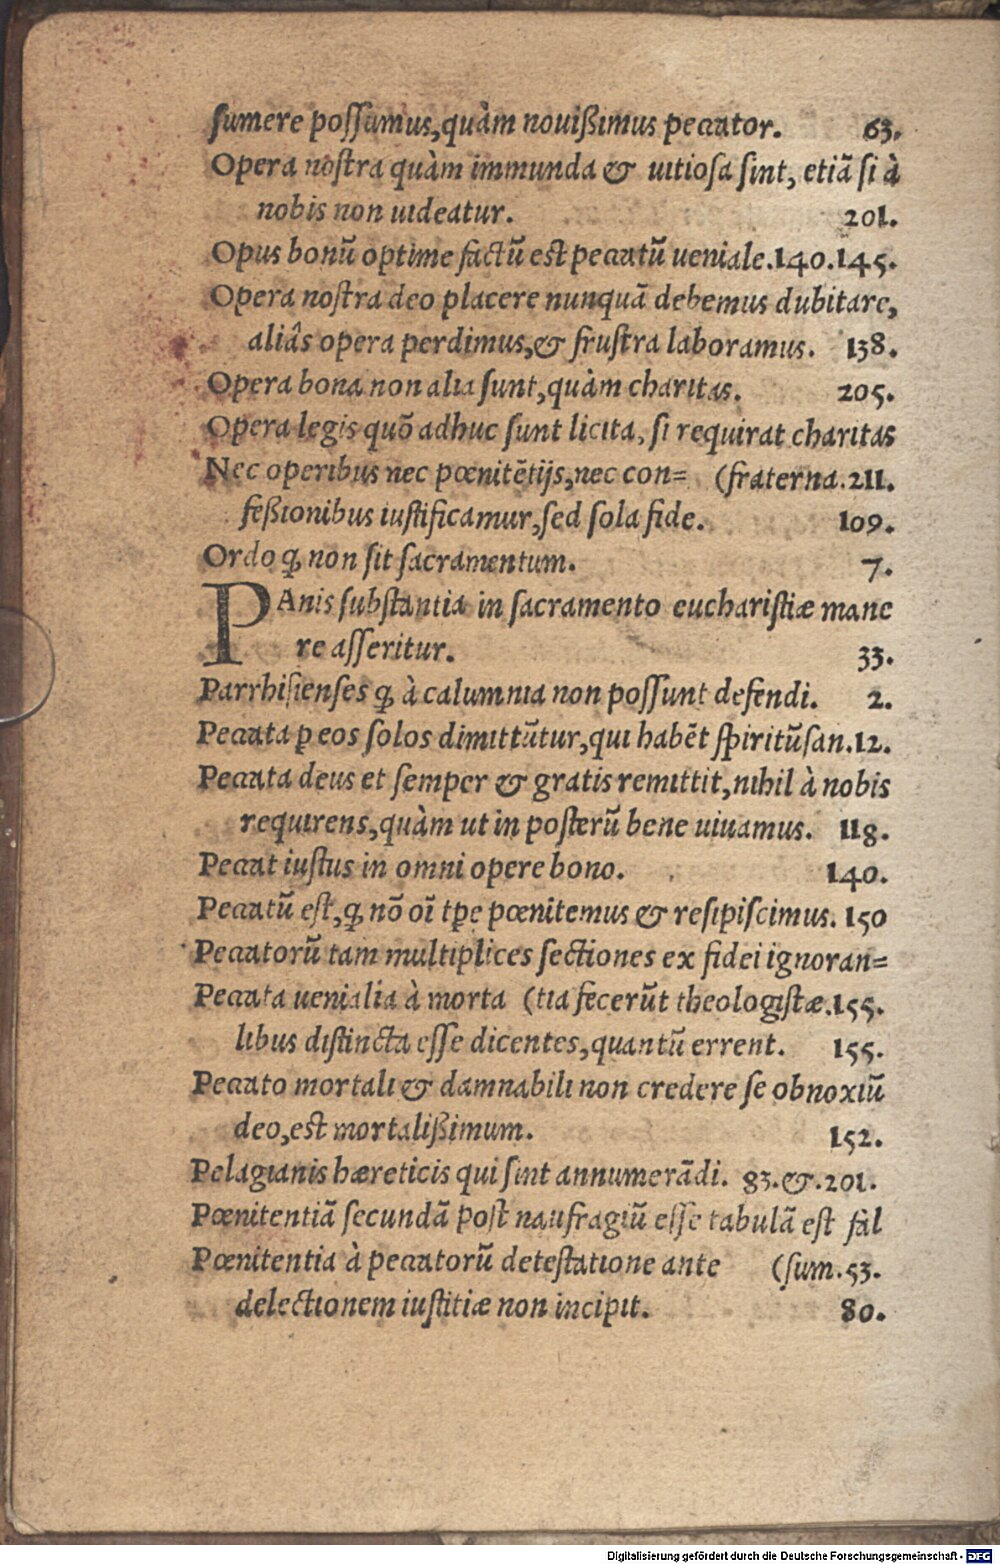 sumere possumus,quàm nouißimus peccator. 63.
Opera nostra quàm immunda & uitiosa sint, etiā si à
nobis non uideatur. 201.
Opus bonū optime factū est peccatū ueniale.140.145.
Opera nostra deo placere nunquā debemus dubitare,
aliâs opera perdimus,& frustra laboramus. 138.
Opera bona non alia sunt,quàm charitas. 205.
Opera legis quō adhuc sunt licita, si requirat charitas
Nec operibus nec pœnitētijs,nec con= (fraterna.211.
feßionibus iustificamur,sed sola fide. 109.
Ordo ꝙ non sit sacramentum. 7.
PAnis substantia in sacramento eucharistiæ mane
re asseritur. 33.
Parrhisienses ꝙ à calumnia non possunt defendi. 2.
Peccata ꝑ eos solos dimittūtur,qui habēt spiritū san.12.
Peccata deus et semper & gratis remittit,nihil à nobis
requirens,quàm ut in posterū bene uiuamus. 118.
Peccat iustus in omni opere bono. 140.
Peccatū est,ꝙ nō oī tp̄e pœnitemus & resipiscimus. 150
Peccatorū tam multiplices sectiones ex fidei ignoran=
Peccata uenialia à morta (tia fecerūt theologistæ.155.
libus distincta esse dicentes,quantū errent. 155.
Peccato mortali & damnabili non credere se obnoxiū
deo,est mortalißimum. 152.
Pelagianis hæreticis qui sint annumerādi. 83.&.201.
Pœnitentiā secundā post naufragiū esse tabulā est fal
Pœnitentia à peccatorū detestatione ante (sum.53.
delectionem iustitiæ non incipit. 80.
Digitalisierung gefördert durch die Deutsche Forschungsgemeinschaft - DFG